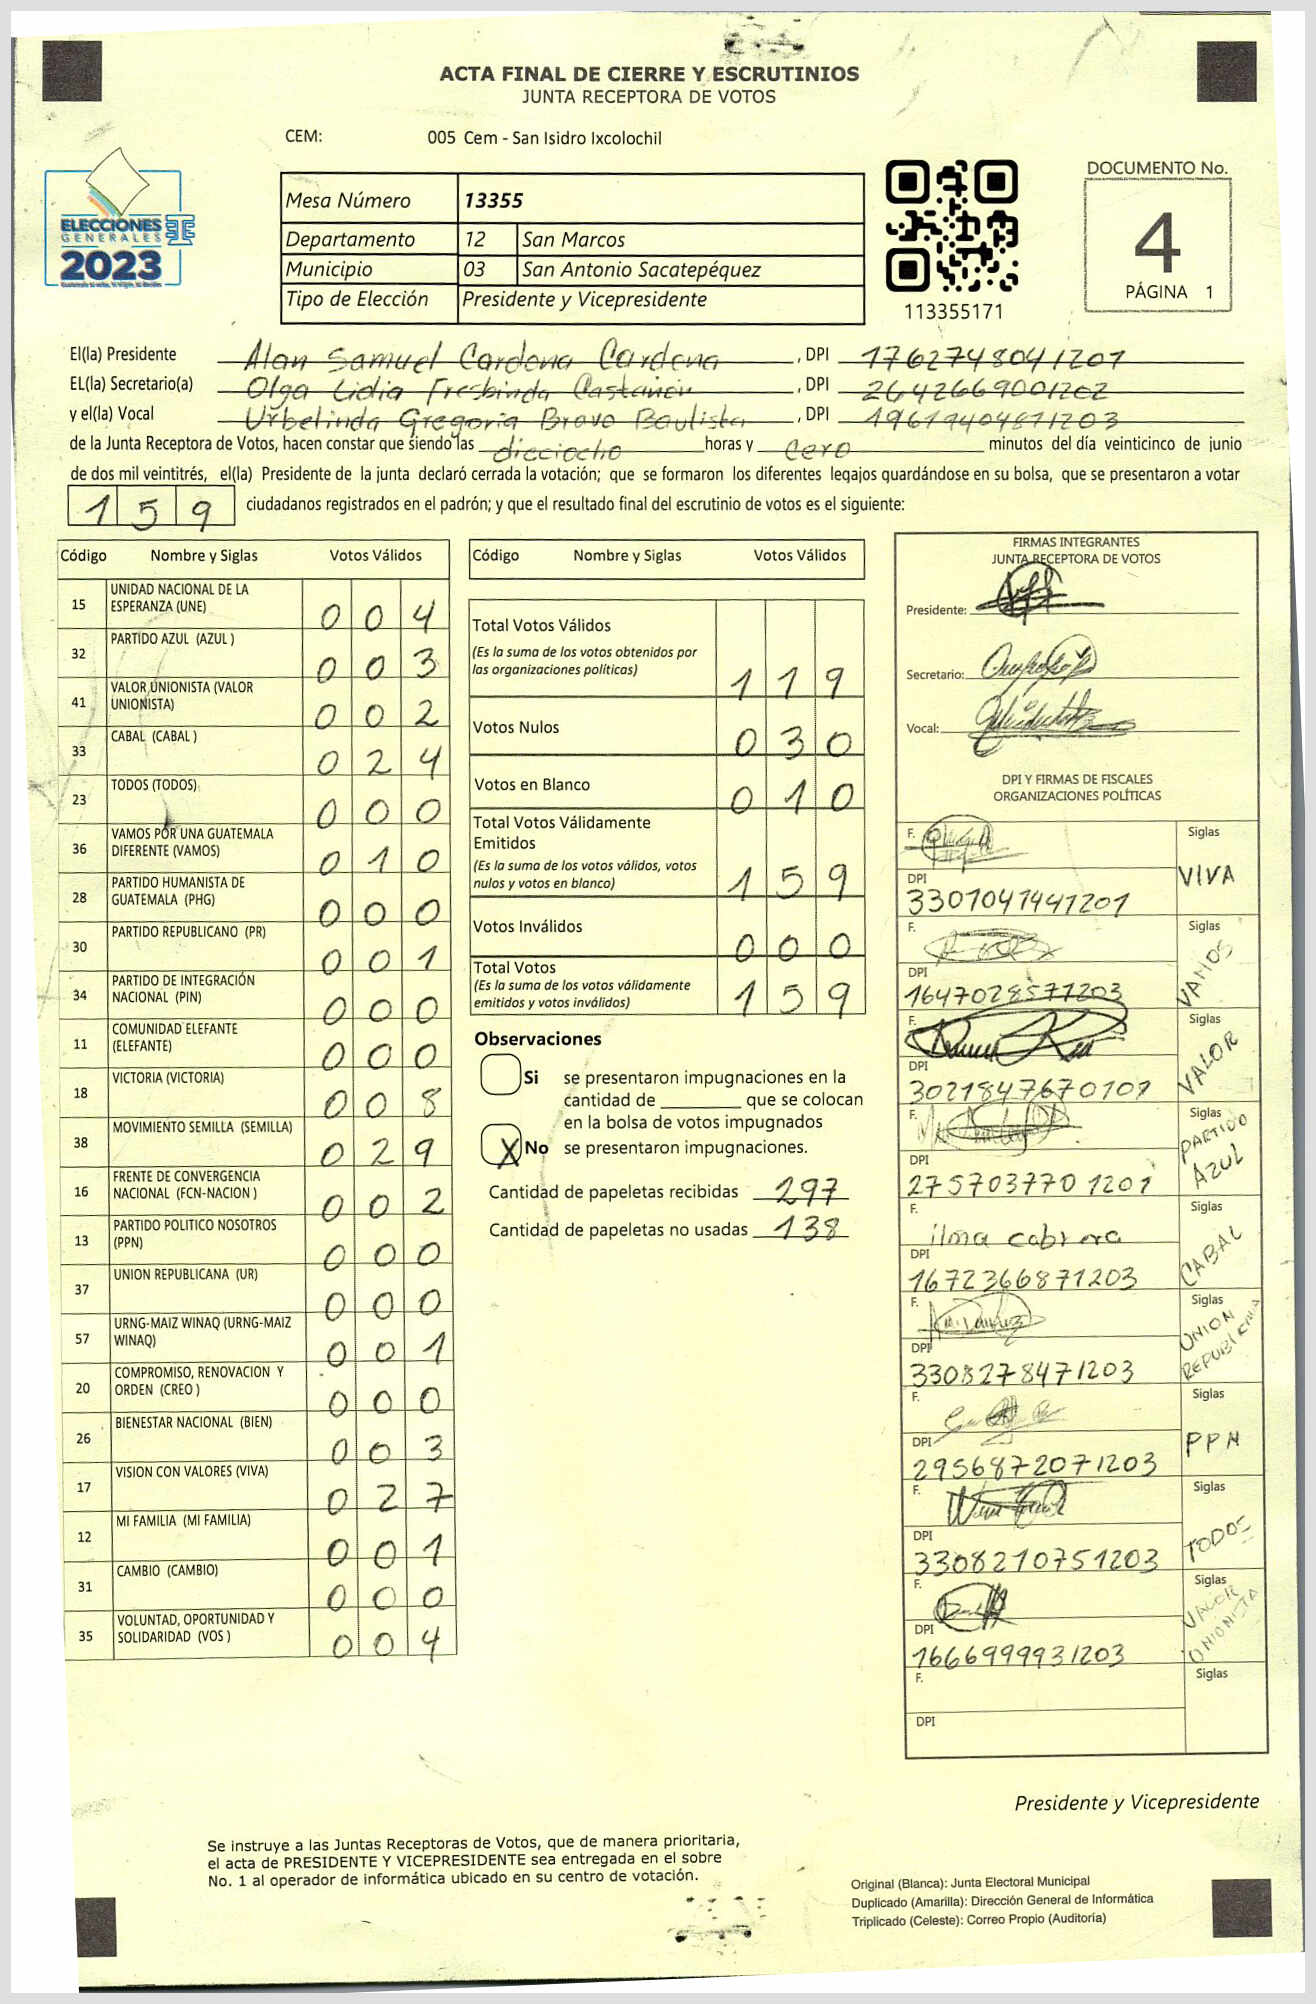 ACTA FINAL DE CIERRE Y ESCRUTINIOS
JUNTA RECEPTORA DE VOTOS
CEM: 005 Cem - San Isidro Ixcolochil
ELECCIONES
GENERALES
2023
Mesa Número 13355
Departamento 12 San Marcos
Municipio 03 San Antonio Sacatepéquez
Tipo de Elección Presidente y Vicepresidente
113355171
DOCUMENTO No.
4
PÁGINA 1
El(la) Presidente Alan Samuel Cardona Cardona, DPI 1762748041201
EL(la) Secretario(a) Olga Lidia Castañon, DPI 2642669001202
y el(la) Vocal Urbelinda Gregoria Bravo Bautista, DPI 1961940481203
de la Junta Receptora de Votos, hacen constar que siendo las dieciocho horas y cero minutos del día veinticinco de junio
de dos mil veintitrés, el(la) Presidente de la junta declaró cerrada la votación; que se formaron los diferentes legajos guardándose en su bolsa, que se presentaron a votar
159 ciudadanos registrados en el padrón; y que el resultado final del escrutinio de votos es el siguiente:
Código Nombre y Siglas Votos Válidos
15 UNIDAD NACIONAL DE LA
ESPERANZA (UNE) 0 0 4
32 PARTIDO AZUL (AZUL ) 0 0 3
41 VALOR UNIONISTA (VALOR
UNIONISTA) 0 0 2
33 CABAL (CABAL ) 0 2 4
23 TODOS (TODOS) 0 0 0
36 VAMOS POR UNA GUATEMALA
DIFERENTE (VAMOS) 0 1 0
28 PARTIDO HUMANISTA DE
GUATEMALA (PHG) 0 0 0
30 PARTIDO REPUBLICANO (PR) 0 0 1
34 PARTIDO DE INTEGRACIÓN
NACIONAL (PIN) 0 0 0
11 COMUNIDAD ELEFANTE
(ELEFANTE) 0 0 0
18 VICTORIA (VICTORIA) 0 0 8
38 MOVIMIENTO SEMILLA (SEMILLA) 0 2 9
16 FRENTE DE CONVERGENCIA
NACIONAL (FCN-NACION ) 0 0 2
13 PARTIDO POLITICO NOSOTROS
(PPN) 0 0 0
37 UNION REPUBLICANA (UR) 0 0 0
57 URNG-MAIZ WINAQ (URNG-MAIZ
WINAQ) 0 0 1
20 COMPROMISO, RENOVACION Y
ORDEN (CREO ) 0 0 0
26 BIENESTAR NACIONAL (BIEN) 0 0 3
17 VISION CON VALORES (VIVA) 0 2 7
12 MI FAMILIA (MI FAMILIA) 0 0 1
31 CAMBIO (CAMBIO) 0 0 0
35 VOLUNTAD, OPORTUNIDAD Y
SOLIDARIDAD (VOS ) 0 0 4
Código Nombre y Siglas Votos Válidos
Total Votos Válidos
(Es la suma de los votos obtenidos por
las organizaciones políticas) 1 1 9
Votos Nulos 0 3 0
Votos en Blanco 0 1 0
Total Votos Válidamente
Emitidos
(Es la suma de los votos válidos, votos
nulos y votos en blanco) 1 5 9
Votos Inválidos 0 0 0
Total Votos
(Es la suma de los votos válidamente
emitidos y votos inválidos) 1 5 9
Observaciones
Si se presentaron impugnaciones en la
cantidad de ________ que se colocan
en la bolsa de votos impugnados
X No se presentaron impugnaciones.
Cantidad de papeletas recibidas 297
Cantidad de papeletas no usadas 138
FIRMAS INTEGRANTES
JUNTA RECEPTORA DE VOTOS
Presidente:
Secretario:
Vocal:
DPI Y FIRMAS DE FISCALES
ORGANIZACIONES POLÍTICAS
F. Siglas
VIVA
DPI
3301041441201
F. Siglas
VAMOS
DPI
1647028571203
F. Siglas
VALOR
DPI
3021847670101
F. Siglas
PARTIDO
AZUL
DPI
2757037701201
F. ilma cabrera Siglas
CABAL
DPI
1672366871203
F. Siglas
UNION
REPUBLICANA
DPI
3308278471203
F. Siglas
PPN
DPI
2956872071203
F. Siglas
TODOS
DPI
3308210751203
F. Siglas
VALOR
UNIONISTA
DPI
1666999931203
F. Siglas
DPI
Presidente y Vicepresidente
Se instruye a las Juntas Receptoras de Votos, que de manera prioritaria,
el acta de PRESIDENTE Y VICEPRESIDENTE sea entregada en el sobre
No. 1 al operador de informática ubicado en su centro de votación.
Original (Blanca): Junta Electoral Municipal
Duplicado (Amarilla): Dirección General de Informática
Triplicado (Celeste): Correo Propio (Auditoría)